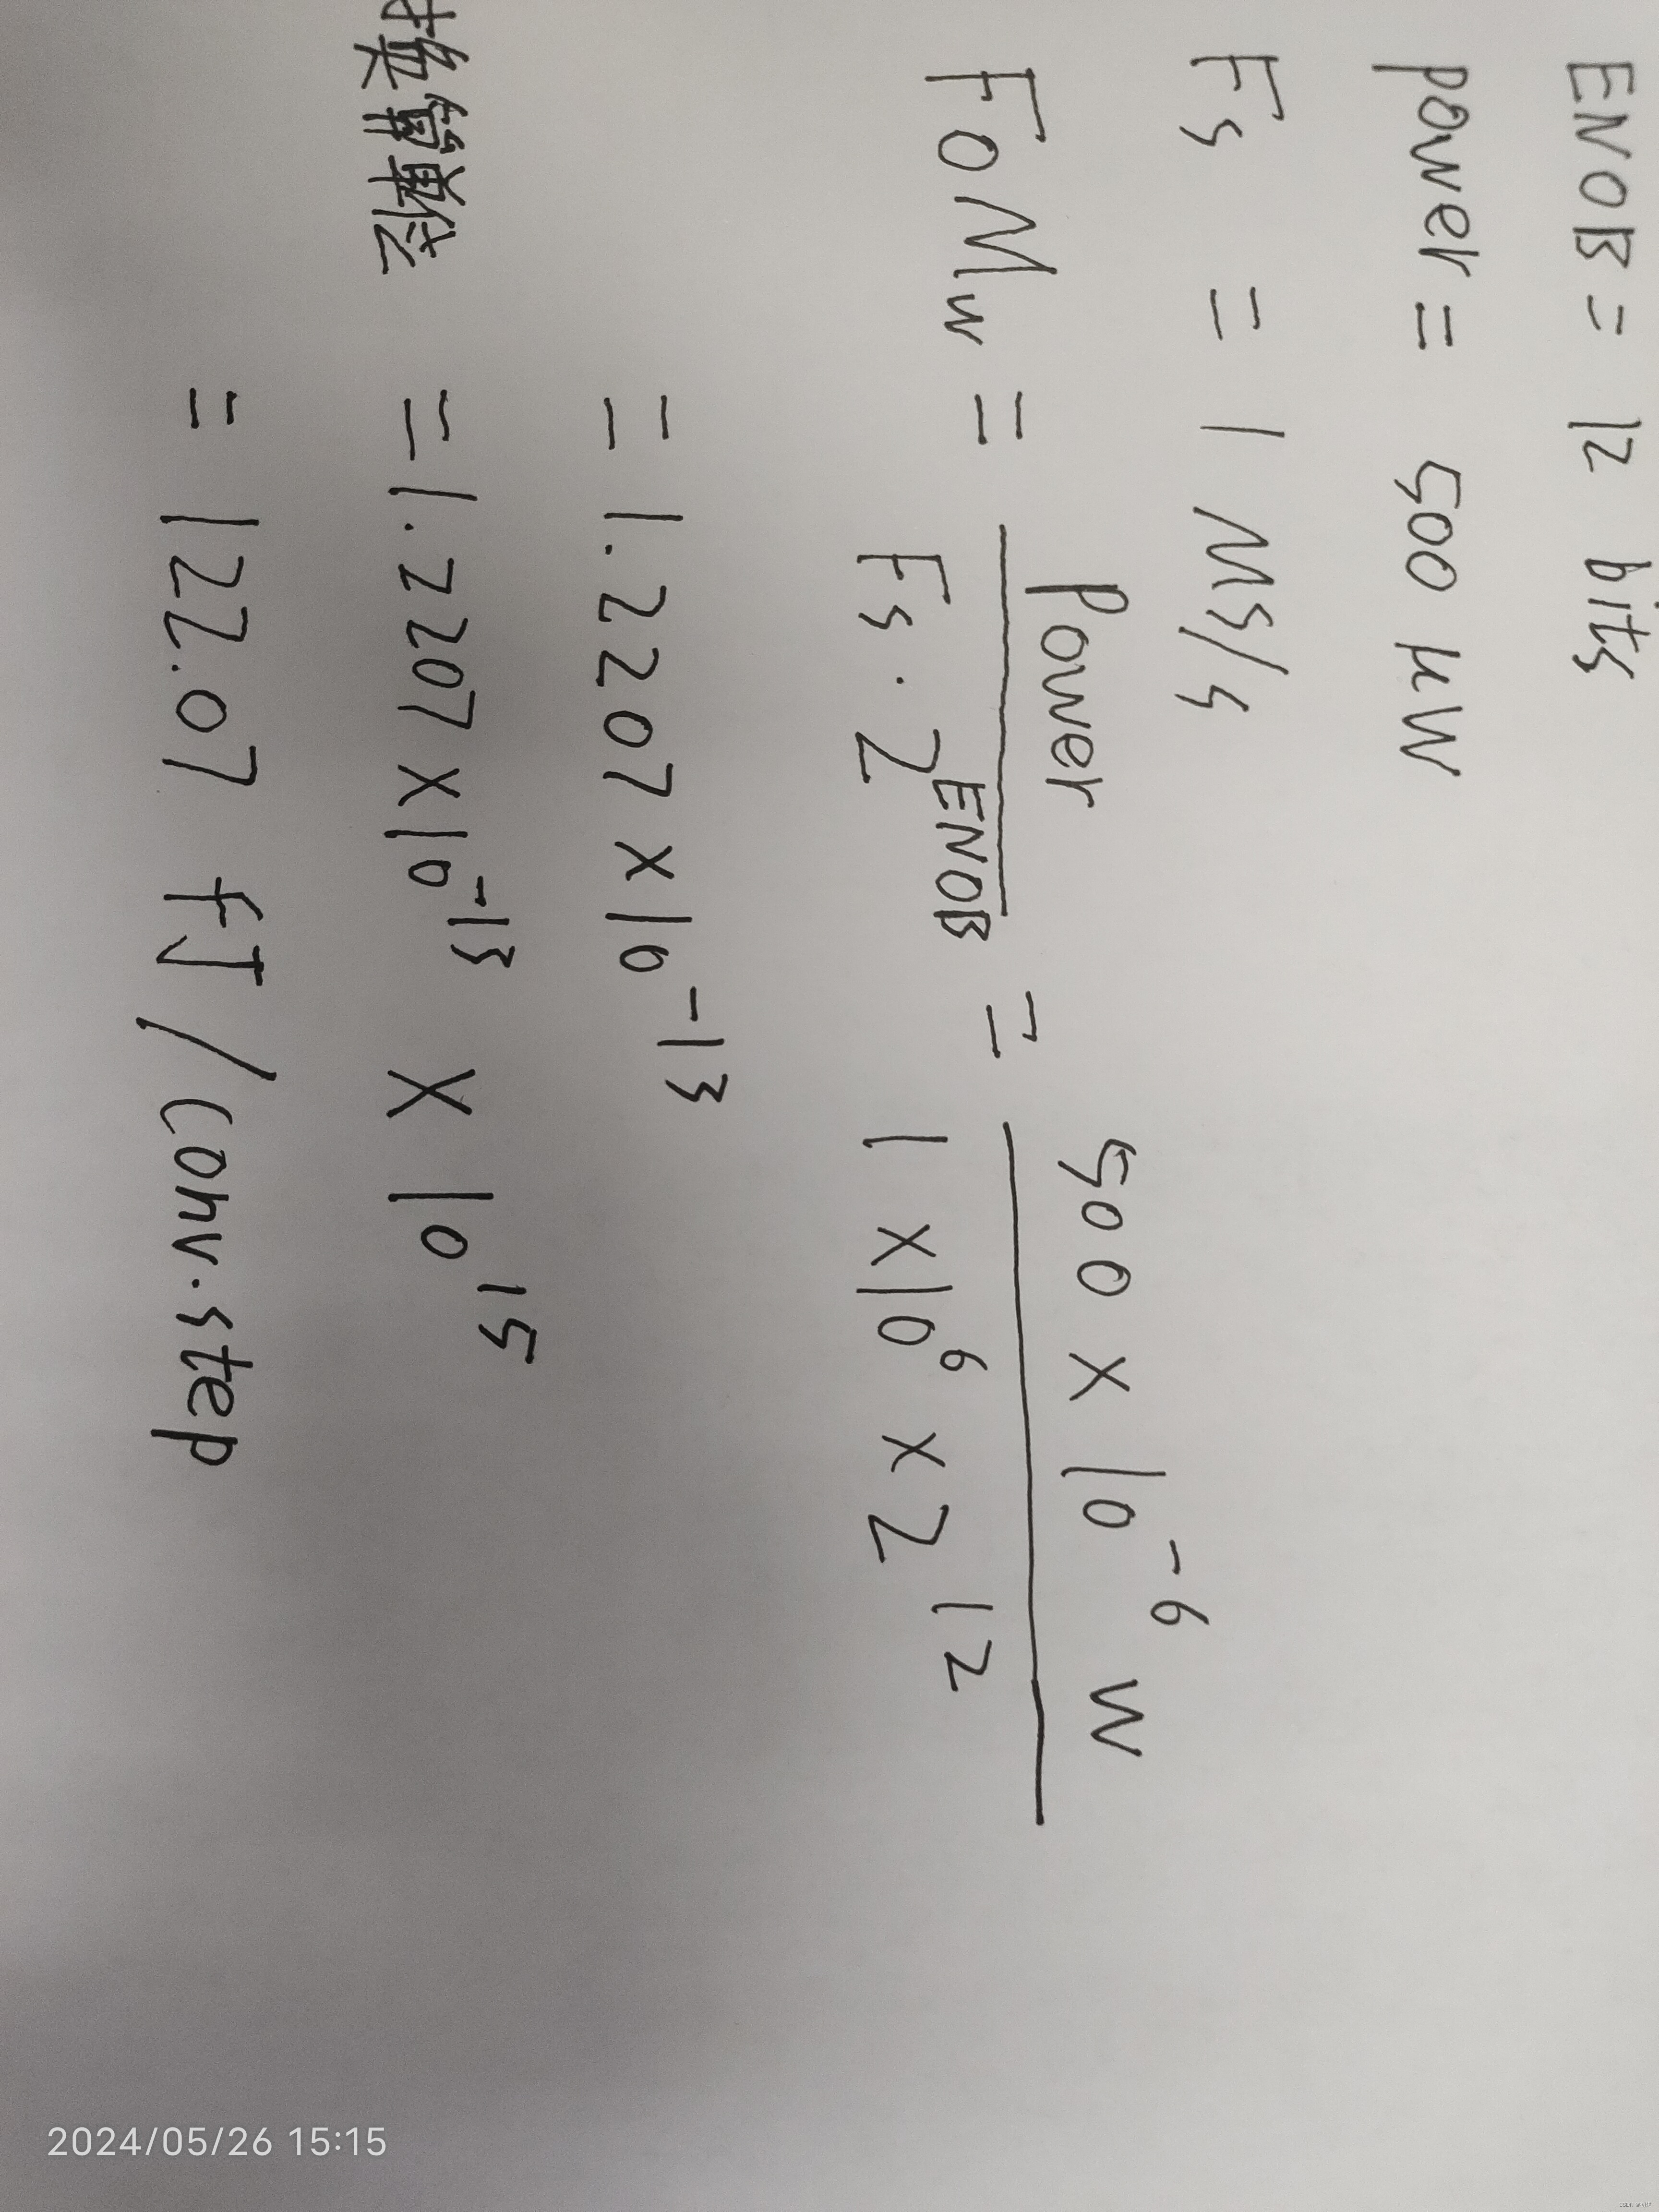 ENOB = 12 bits
Power = 500 μW
Fs = 1 MS/s
FoMw = Power / Fs · 2^ENOB = 500 × 10^-6 W / 1 × 10^6 × 2^12
= 1.2207 × 10^-13
換算單位 = 1.2207 × 10^-13 × 10^15
= 122.07 fJ/conv.step
2024/05/26 15:15